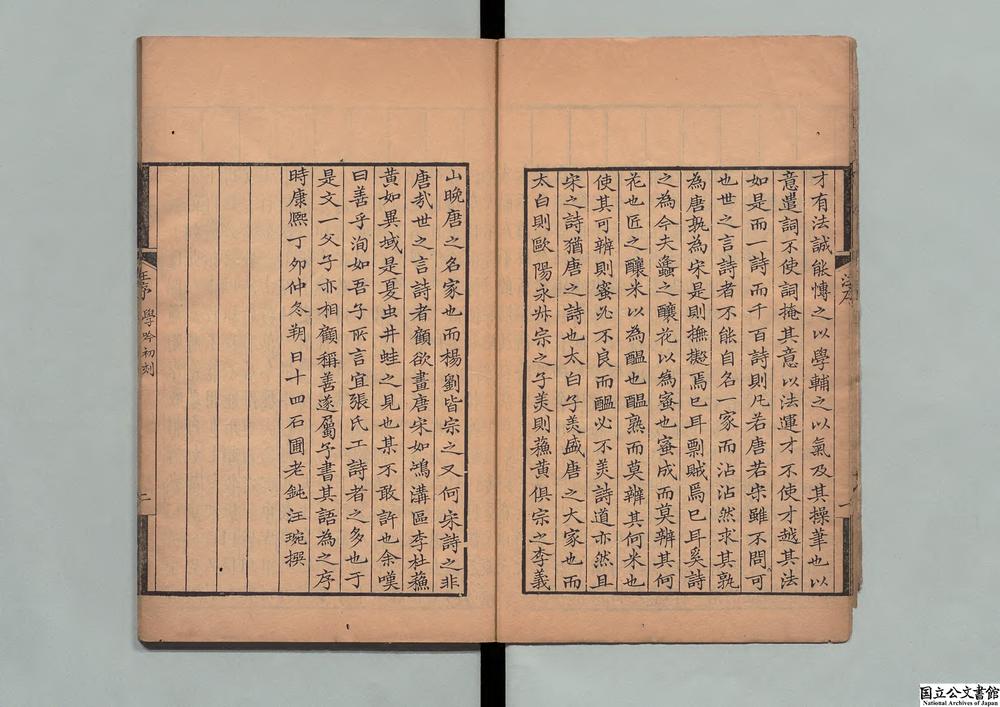 才有法誠能慱之以學輔之以氣及其操筆也以
意遣詞不使詞掩其意以法運才不使才越其法
如是而一詩而千百詩則凢若唐若宋雖不問可
也世之言詩者不能自名一家而沾沾然求其孰
為唐孰為宋是則撫擬焉已耳剽賊焉已耳奚詩
之為今夫蠭之釀花以為蜜也蜜成而莫辨其何
花也匠之釀米以為醖也醖熟而莫辨其何米也
使其可辨則蜜必不良而醖必不美詩道亦然且
宋之詩猶唐之詩也太白子美盛唐之大家也而
太白則歐陽永叔宗之子美則蘓黄俱宗之李義
山晚唐之名家也而楊劉皆宗之又何宋詩之非
唐㢤世之言詩者顧欲畫唐宋如鴻溝區李杜蘓
黄如異域是夏虫井蛙之見也某不敢許也余嘆
曰善乎洵如吾子所言宜張氏工詩者之多也于
是文一父子亦相顧稱善遂屬予書其語為之序
時康熈丁夘仲冬朔日十四石圃老鈍汪琬撰
汪序 學吟初刻
二
国立公文書館
National Archives of Japan